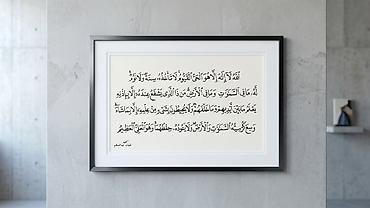 الله لا إله إلا هو الحي القيوم لا تأخذه سنة ولا نوم
له ما في السموات وما في الأرض من ذا الذي يشفع عنده إلا بإذنه
يعلم ما بين أيديهم وما خلفهم ولا يحيطون بشيء من علمه إلا بما شاء
وسع كرسيه السموات والأرض ولا يئوده حفظهما وهو العلي العظيم